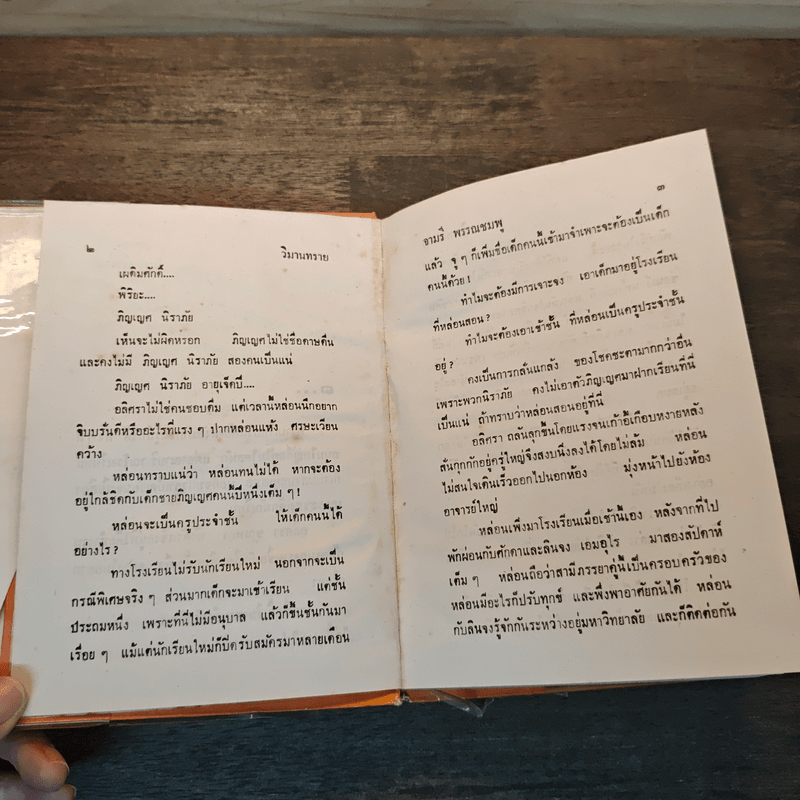 ๒ วิมานทราย
เผดิมศักดิ์....
พิริยะ....
ภิญเญศ นิราภัย
เห็นจะไม่ผิดหรอก ภิญเญศไม่ใช่ชื่อดาษดื่น
และคงไม่มี ภิญเญศ นิราภัย สองคนเป็นแน่
ภิญเญศ นิราภัย อายุเจ็ดปี....
อลิศราไม่ใช่คนชอบดื่ม แต่เวลานี้หล่อนนึกอยาก
จิบบรั่นดีหรืออะไรที่แรง ๆ ปากหล่อนแห้ง ศรษะเวียน
คว้าง
หล่อนทราบแน่ว่า หล่อนทนไม่ได้ หากจะต้อง
อยู่ใกล้ชิดกับเด็กชายภิญเญศคนนี้ปีหนึ่งเต็ม ๆ !
หล่อนจะเป็นครูประจำชั้น ให้เด็กคนนี้ได้
อย่างไร ?
ทางโรงเรียนไม่รับนักเรียนใหม่ นอกจากจะเป็น
กรณีพิเศษจริง ๆ ส่วนมากเด็กจะมาเข้าเรียน แต่ชั้น
ประถมหนึ่ง เพราะที่นี่ไม่มีอนุบาล แล้วก็ขึ้นชั้นกันมา
เรื่อย ๆ แม้แต่นักเรียนใหม่ก็ปิดรับสมัครมาหลายเดือน
๓
จามรี พรรณชมพู
แล้ว จู่ ๆ ก็เพิ่มชื่อเด็กคนนี้เข้ามาจำเพาะจะต้องเป็นเด็ก
คนนี้ด้วย !
ทำไมจะต้องมีการเจาะจง เอาเด็กมาอยู่โรงเรียน
ที่หล่อนสอน ?
ทำไมจะต้องเอาเข้าชั้น ที่หล่อนเป็นครูประจำชั้น
อยู่ ?
คงเป็นการกลั่นแกล้ง ของโชคชะตามากกว่าอื่น
เพราะพวกนิราภัย คงไม่เอาตัวภิญเญศมาฝากเรียนที่นี่
เป็นแน่ ถ้าทราบว่าหล่อนสอนอยู่ที่นี่
อลิศรา ถลันลุกขึ้นโดยแรงจนเก้าอี้เกือบหงายหลัง
สั่นกุกกักอยู่ครู่ใหญ่จึงสงบนิ่งลงได้โดยไม่ล้ม หล่อน
ไม่สนใจเดินเร็วออกไปนอกห้อง มุ่งหน้าไปยังห้อง
อาจารย์ใหญ่
หล่อนเพิ่งมาโรงเรียนเมื่อเช้านี้เอง หลังจากที่ไป
พักผ่อนกับศักดาและลินจง เอมอุไร มาสองสัปดาห์
เต็ม ๆ หล่อนถือว่าสามีภรรยาคู่นี้เป็นครอบครัวของ
หล่อนมีอะไรก็ปรับทุกข์ และพึ่งพาอาศัยกันได้ หล่อน
กับลินจงรู้จักกันระหว่างอยู่มหาวิทยาลัย และก็ติดต่อกัน